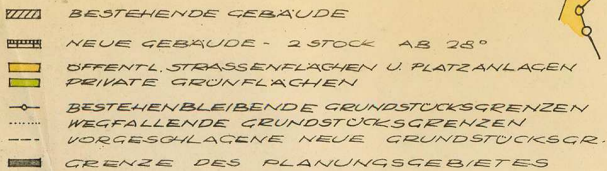 BESTEHENDE GEBÄUDE
NEUE GEBÄUDE - 2 STOCK AB 28°
ÖFFENTL. STRASSENFLÄCHEN U. PLATZANLAGEN
PRIVATE GRÜNFLÄCHEN
BESTEHENBLEIBENDE GRUNDSTÜCKSGRENZEN
WEGFALLENDE GRUNDSTÜCKSGRENZEN
VORGESCHLAGENE NEUE GRUNDSTÜCKSGR.
GRENZE DES PLANUNGSGEBIETES